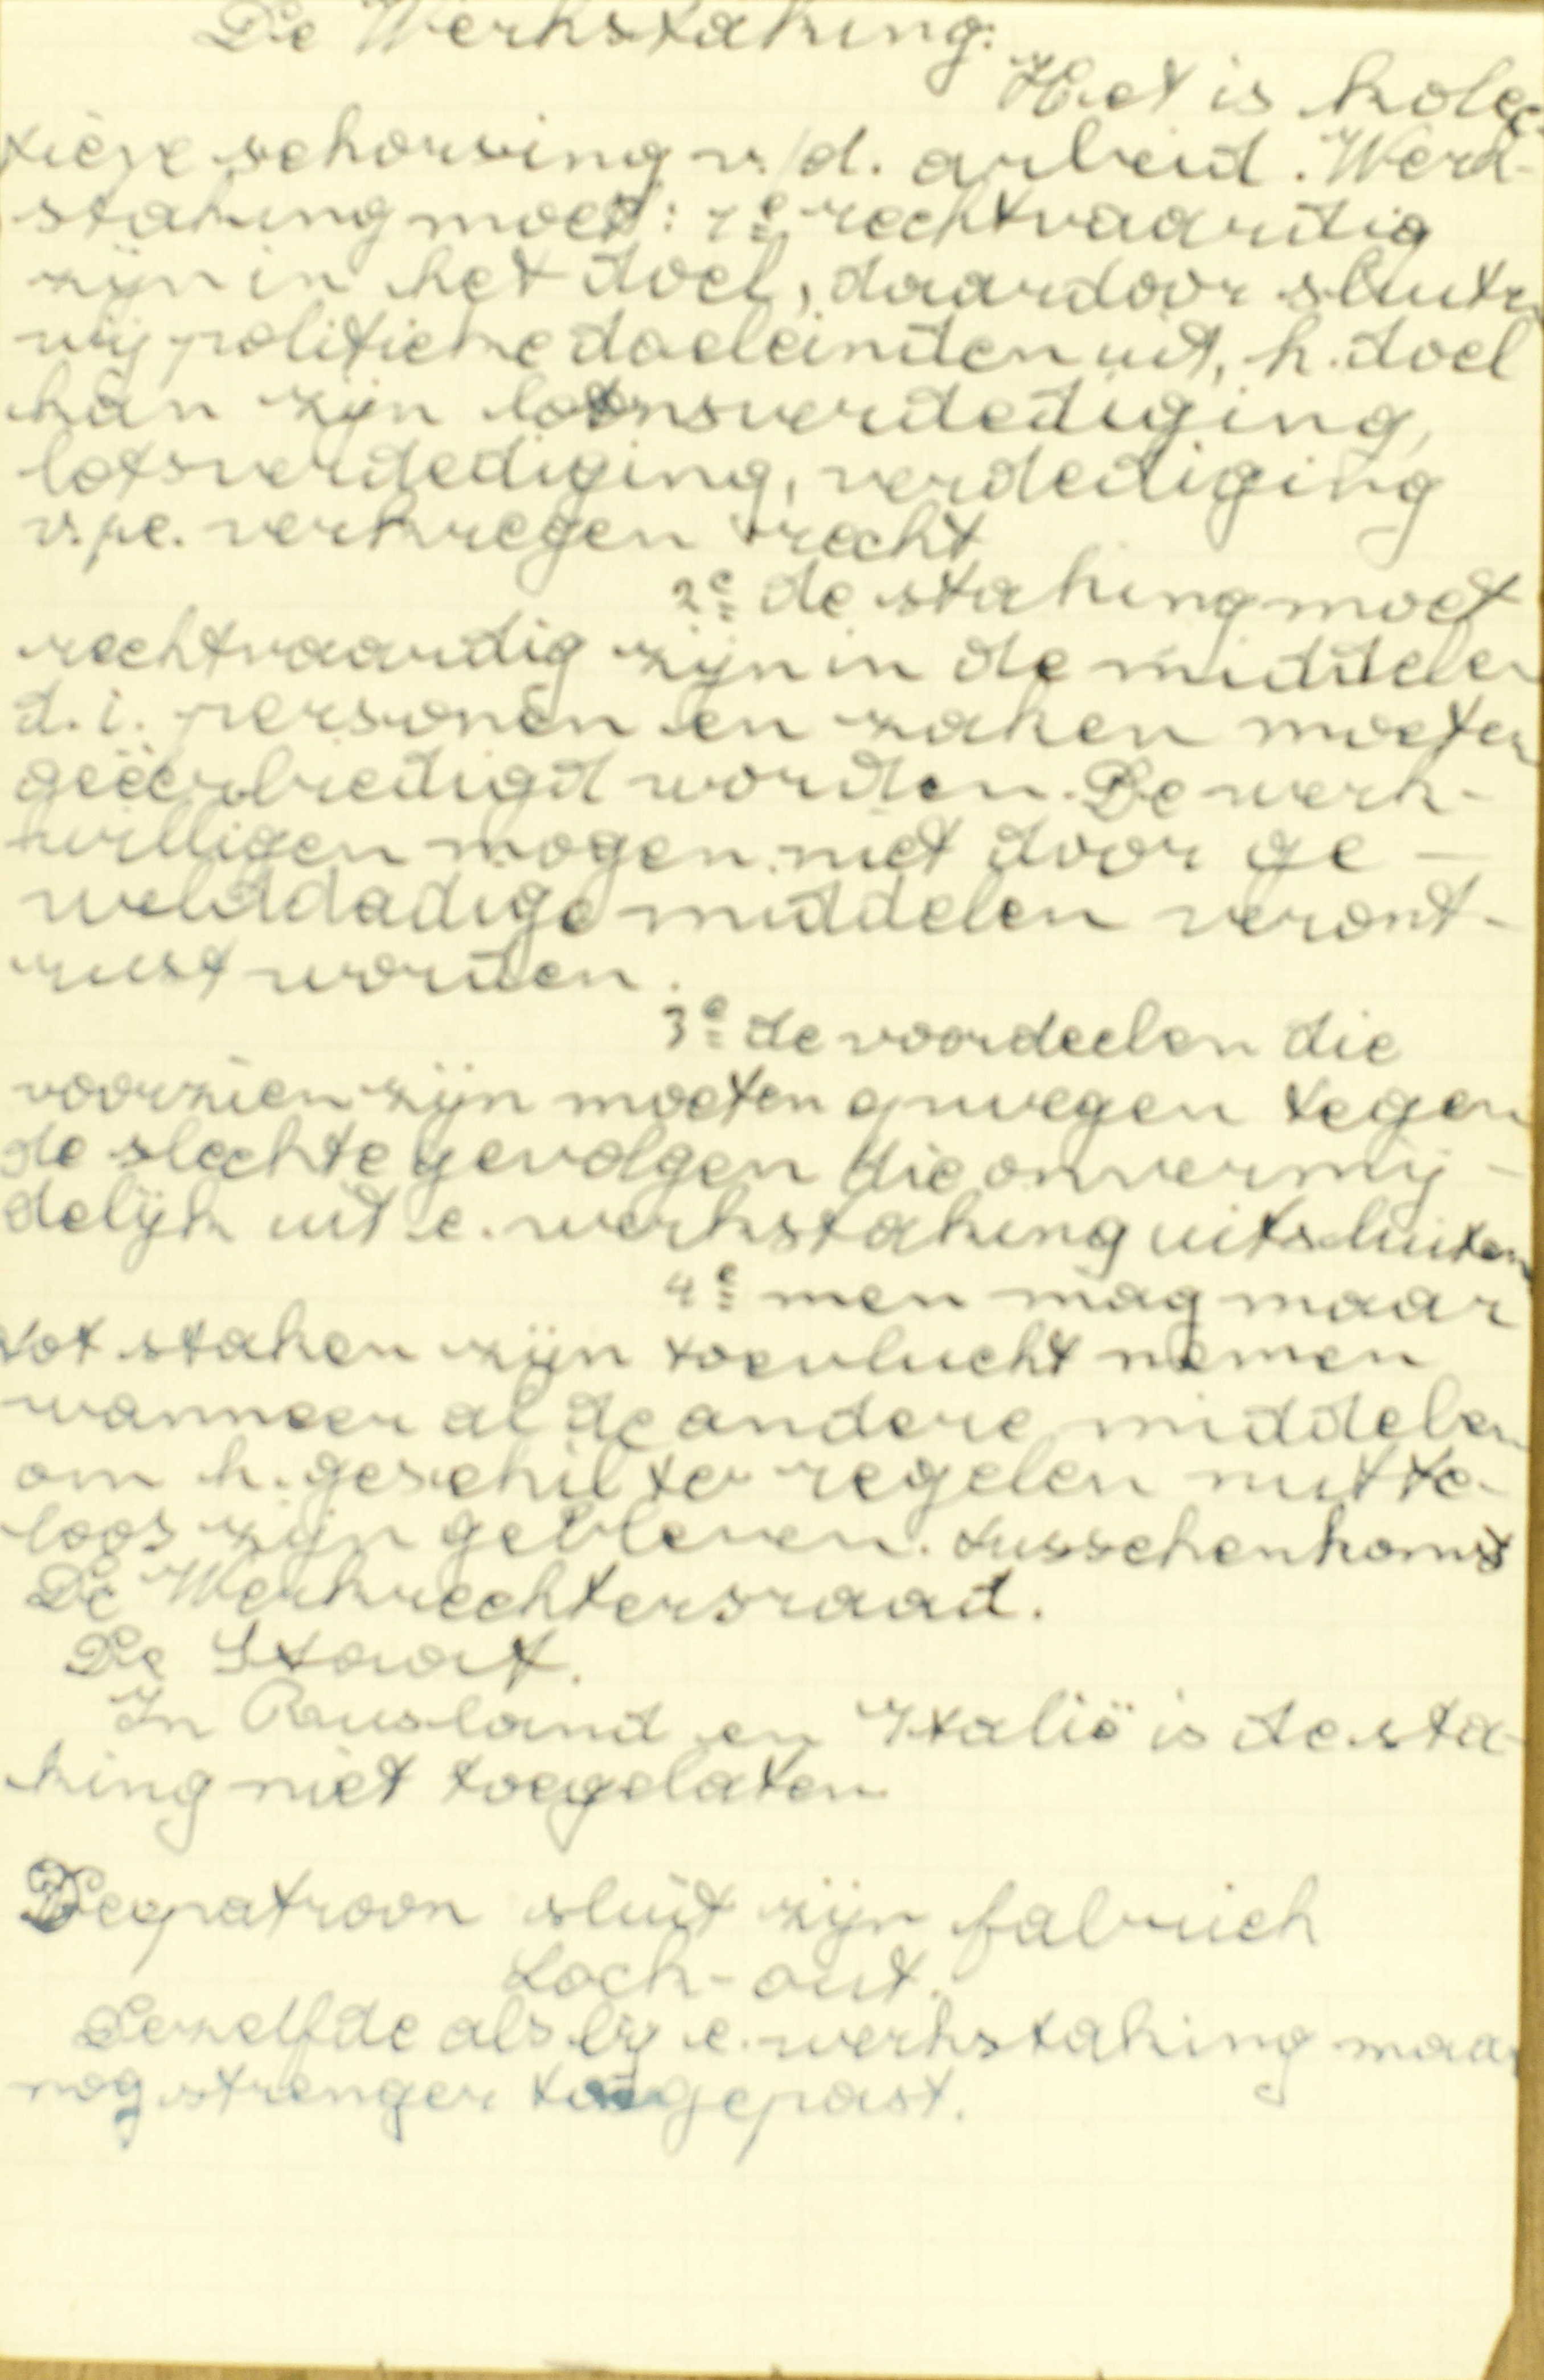 De Werkstaking:
Het is kolec-
tieve schorsing v/d. arbeid. Werk-
staking moet: 1e rechtvaardig
zijn in het doel, daardoor sluiten
wij politieke doeleinden uit, h. doel
kan zijn loonsverdediging,
lotsverdediging, verdediging
v. e. verkregen recht
2e de staking moet
rechtvaardig zijn in de middelen
d. i. personen en zaken moeten
geëerbiedigd worden. De werk-
willigen mogen niet door ge-
welddadige middelen veront-
rust worden.
3e de voordeelen die
voorzien zijn moeten opwegen tegen
de slechte gevolgen die onvermij-
delijk uit e. werkstaking uitsluiten
4e men mag maar
tot staken zijn toevlucht nemen
wanneer al de andere middelen
om h. geschil te regelen nutte-
loos zijn gebleven. tusschenkomst
De Werkrechtersraad.
De Staat.
In Rusland en Italië is de sta-
king niet toegelaten
De patroon sluit zijn fabriek
Lock-out.
Dezelfde als bij e. werkstaking maar
nog strenger toegepast.